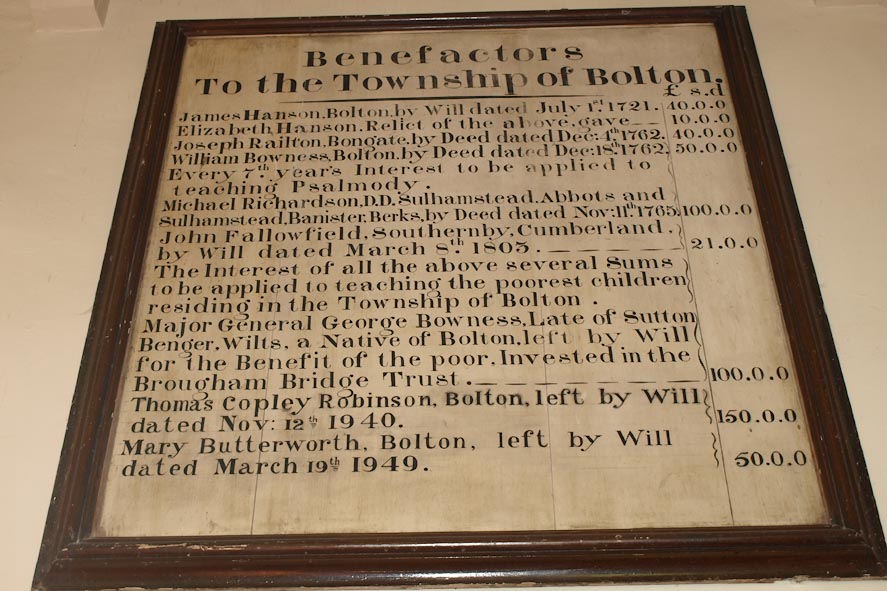 Benefactors
To the Township of Bolton.
£ s.d
James Hanson, Bolton, by Will dated July 1st. 1721. 40.0.0
Elizabeth Hanson, Relict of the above, gave 10.0.0
Joseph Railton, Bongate, by Deed dated Dec: 4th. 1762. 40.0.0
William Bowness, Bolton, by Deed dated Dec: 18th. 1762. 50.0.0
Every 7th. year's Interest to be applied to
teaching Psalmody.
Michael Richardson, D.D. Sulhamstead, Abbots and
Sulhamstead, Banister, Berks, by Deed dated Nov: 11th. 1765. 100.0.0
John Fallowfield, Southernby, Cumberland,
by Will dated March 8th. 1805. 21.0.0
The Interest of all the above several Sums
to be applied to teaching the poorest children
residing in the Township of Bolton.
Major General George Bowness, Late of Sutton
Benger, Wilts, a Native of Bolton, left by Will
for the Benefit of the poor, Invested in the
Brougham Bridge Trust. 100.0.0
Thomas Copley Robinson, Bolton, left by Will
dated Nov: 12th 1940. 150.0.0
Mary Butterworth, Bolton, left by Will
dated March 19th 1949. 50.0.0